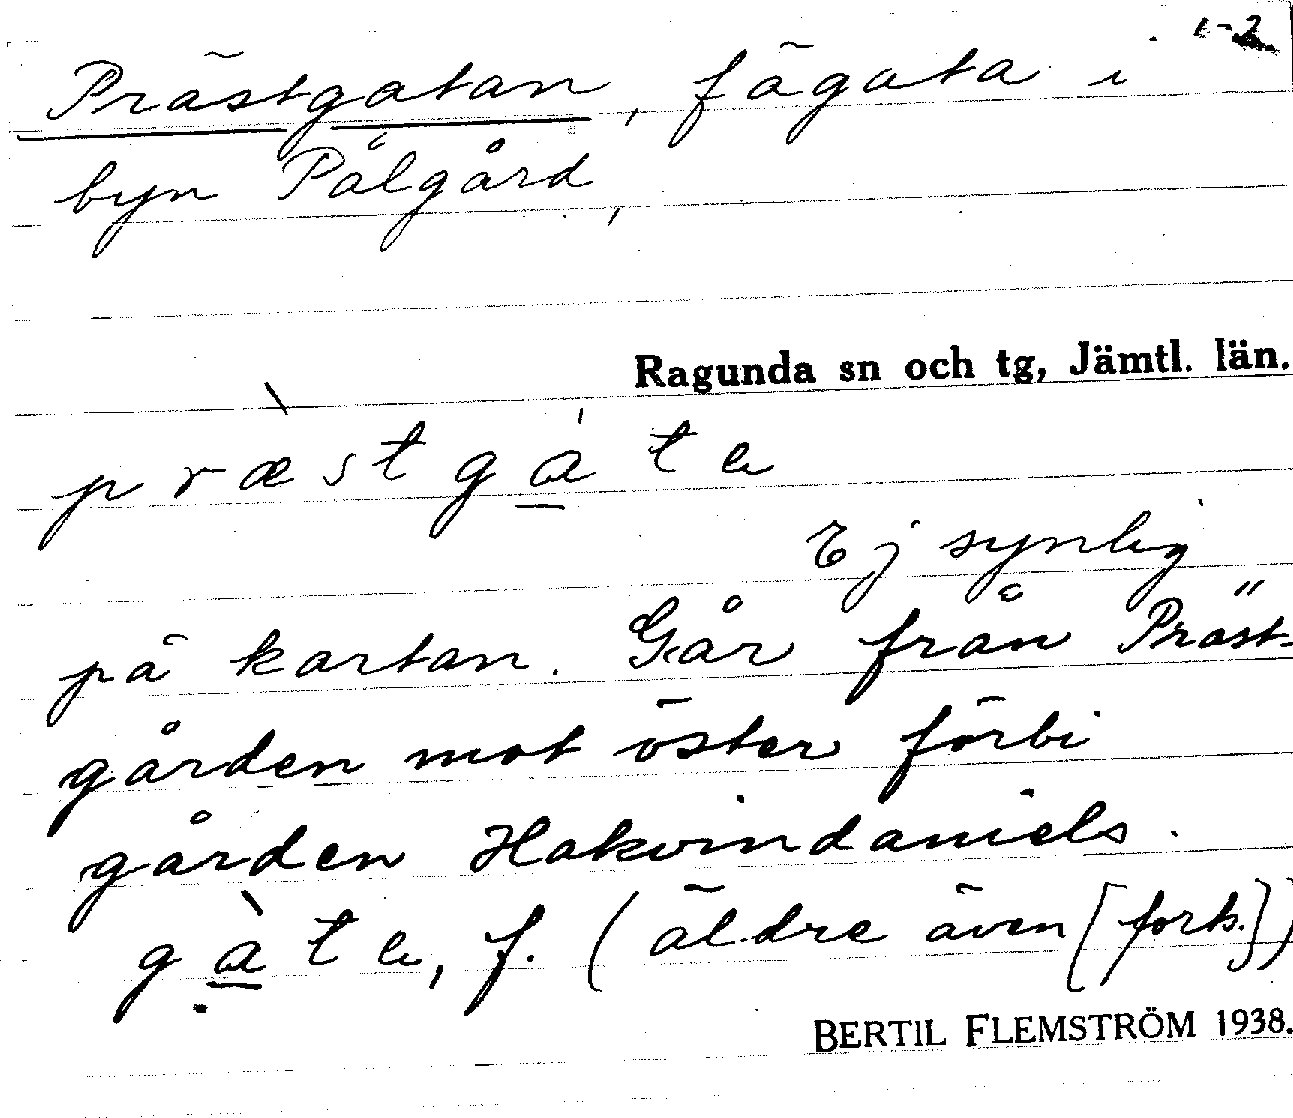 1-2
Prästgatan, fägata i
byn Pålgård,
Ragunda sn och tg, Jämtl. län.
præstgata
Ej synlig
på kartan. Går från Präst-
gården mot öster förbi
gården Hakvindaniels.
gata, f. (äldre även [fork.])
BERTIL FLEMSTRÖM 1938.